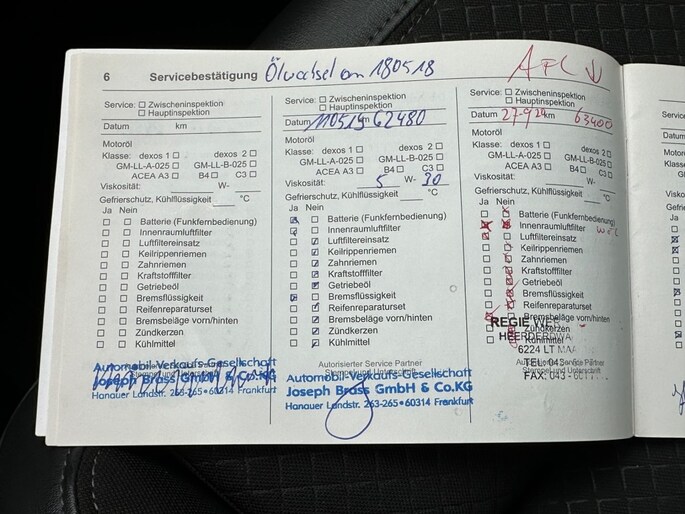 6 Servicebestätigung Ölwechsel am 180518
AFL ↓
Service: ☐ Zwischeninspektion
☐ Hauptinspektion
Datum km
Motoröl
Klasse: dexos 1 ☐ dexos 2 ☐
GM-LL-A-025 ☐ GM-LL-B-025 ☐
ACEA A3 ☐ B4 ☐ C3 ☐
Viskosität: W-
Gefrierschutz, Kühlflüssigkeit °C
Ja Nein
Batterie (Funkfernbedienung)
Innenraumluftfilter
Luftfiltereinsatz
Keilrippenriemen
Zahnriemen
Kraftstofffilter
Getriebeöl
Bremsflüssigkeit
Reifenreparaturset
Bremsbeläge vorn/hinten
Zündkerzen
Kühlmittel
Automobil-Verkaufs-Gesellschaft
Joseph Brass GmbH & Co.KG
Hanauer Landstr. 263-265•60314 Frankfurt
Service: ☐ Zwischeninspektion
☐ Hauptinspektion
Datum 110519 km 62480
Motoröl
Klasse: dexos 1 ☐ dexos 2 ☐
GM-LL-A-025 ☐ GM-LL-B-025 ☐
ACEA A3 ☐ B4 ☐ C3 ☐
Viskosität: 5 W- 30
Gefrierschutz, Kühlflüssigkeit °C
Ja Nein
Batterie (Funkfernbedienung)
Innenraumluftfilter
Luftfiltereinsatz
Keilrippenriemen
Zahnriemen
Kraftstofffilter
Getriebeöl
Bremsflüssigkeit
Reifenreparaturset
Bremsbeläge vorn/hinten
Zündkerzen
Kühlmittel
Autorisierter Service Partner
Stempel und Unterschrift
Automobil-Verkaufs-Gesellschaft
Joseph Brass GmbH & Co.KG
Hanauer Landstr. 263-265•60314 Frankfurt
Service: ☐ Zwischeninspektion
☐ Hauptinspektion
Datum 27-9-24 km 63400
Motoröl
Klasse: dexos 1 ☐ dexos 2 ☐
GM-LL-A-025 ☐ GM-LL-B-025 ☐
ACEA A3 ☐ B4 ☐ C3 ☐
Viskosität: W-
Gefrierschutz, Kühlflüssigkeit °C
Ja Nein
Batterie (Funkfernbedienung)
Innenraumluftfilter
Luftfiltereinsatz
Keilrippenriemen
Zahnriemen
Kraftstofffilter
Getriebeöl
Bremsflüssigkeit
Reifenreparaturset
Bremsbeläge vorn/hinten
Zündkerzen
Kühlmittel
REGIE
6224 LT MAA
TEL: 043
Stempel und Unterschrift
FAX: 043 - 601